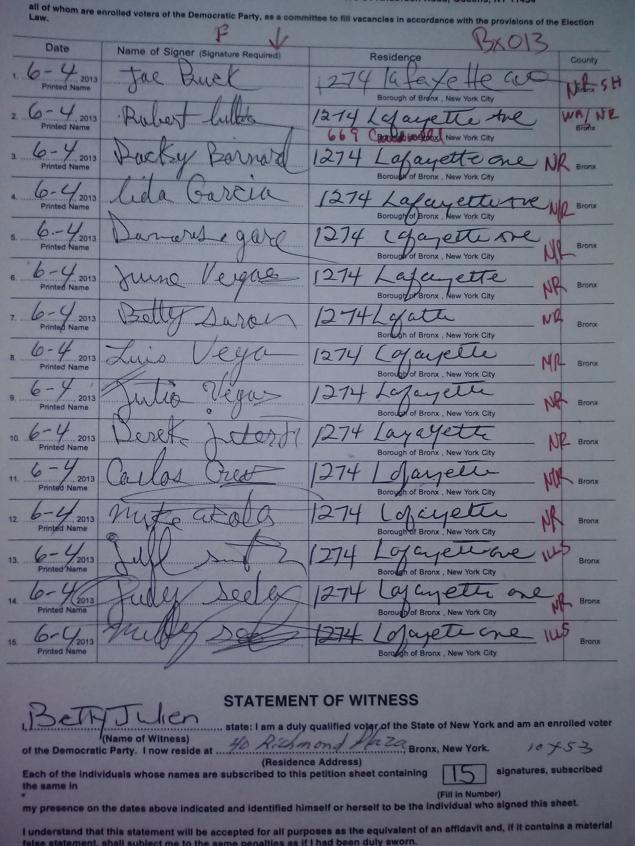 all of whom are enrolled voters of the Democratic Party, as a committee to fill vacancies in accordance with the provisions of the Election
Law.
F
BX013
Date Name of Signer (Signature Required) Residence County
1. 6-4 2013 Joe Buck 1274 Lafayette ave NR SH
Printed Name Borough of Bronx, New York City Bronx
2. 6-4 2013 Robert 1274 Lafayette Ave WA/NR
Printed Name 669 New York City Bronx
3. 6-4 2013 Backy Barnard 1274 Lafayette ave NR
Printed Name Borough of Bronx, New York City Bronx
4. 6-4 2013 Lida Garcia 1274 Lafayette Ave NR
Printed Name Borough of Bronx, New York City Bronx
5. 6-4 2013 1274 Lafayette Ave NR
Printed Name Borough of Bronx, New York City Bronx
6. 6-4 2013 June Vegas 1274 Lafayette NR
Printed Name Borough of Bronx, New York City Bronx
7. 6-4 2013 Betty 1274 Lafatte NR
Printed Name Borough of Bronx, New York City Bronx
8. 6-4 2013 Luis Vega 1274 Lafayette NR
Printed Name Borough of Bronx, New York City Bronx
9. 6-4 2013 Julio Vegas 1274 Lafayette NR
Printed Name Borough of Bronx, New York City Bronx
10. 6-4 2013 Derek 1274 Layayette NR
Printed Name Borough of Bronx, New York City Bronx
11. 6-4 2013 Carlos 1274 Lafayette NR
Printed Name Borough of Bronx, New York City Bronx
12. 6-4 2013 1274 Lafayette NR
Printed Name Borough of Bronx, New York City Bronx
13. 6-4 2013 1274 Lafayette ave IUS
Printed Name Borough of Bronx, New York City Bronx
14. 6-4 2013 Judy 1274 Lafayette ave NR
Printed Name Borough of Bronx, New York City Bronx
15. 6-4 2013 1274 Lafayete ave IUS
Printed Name Borough of Bronx, New York City Bronx
STATEMENT OF WITNESS
I, Betty Julien state: I am a duly qualified voter of the State of New York and am an enrolled voter
(Name of Witness)
of the Democratic Party. I now reside at 40 Richmond Plaza, Bronx, New York. 10453
(Residence Address)
Each of the individuals whose names are subscribed to this petition sheet containing 15 signatures, subscribed
the same in (Fill in Number)
my presence on the dates above indicated and identified himself or herself to be the individual who signed this sheet.
I understand that this statement will be accepted for all purposes as the equivalent of an affidavit and, if it contains a material
false statement, shall subject me to the same penalties as if I had been duly sworn.